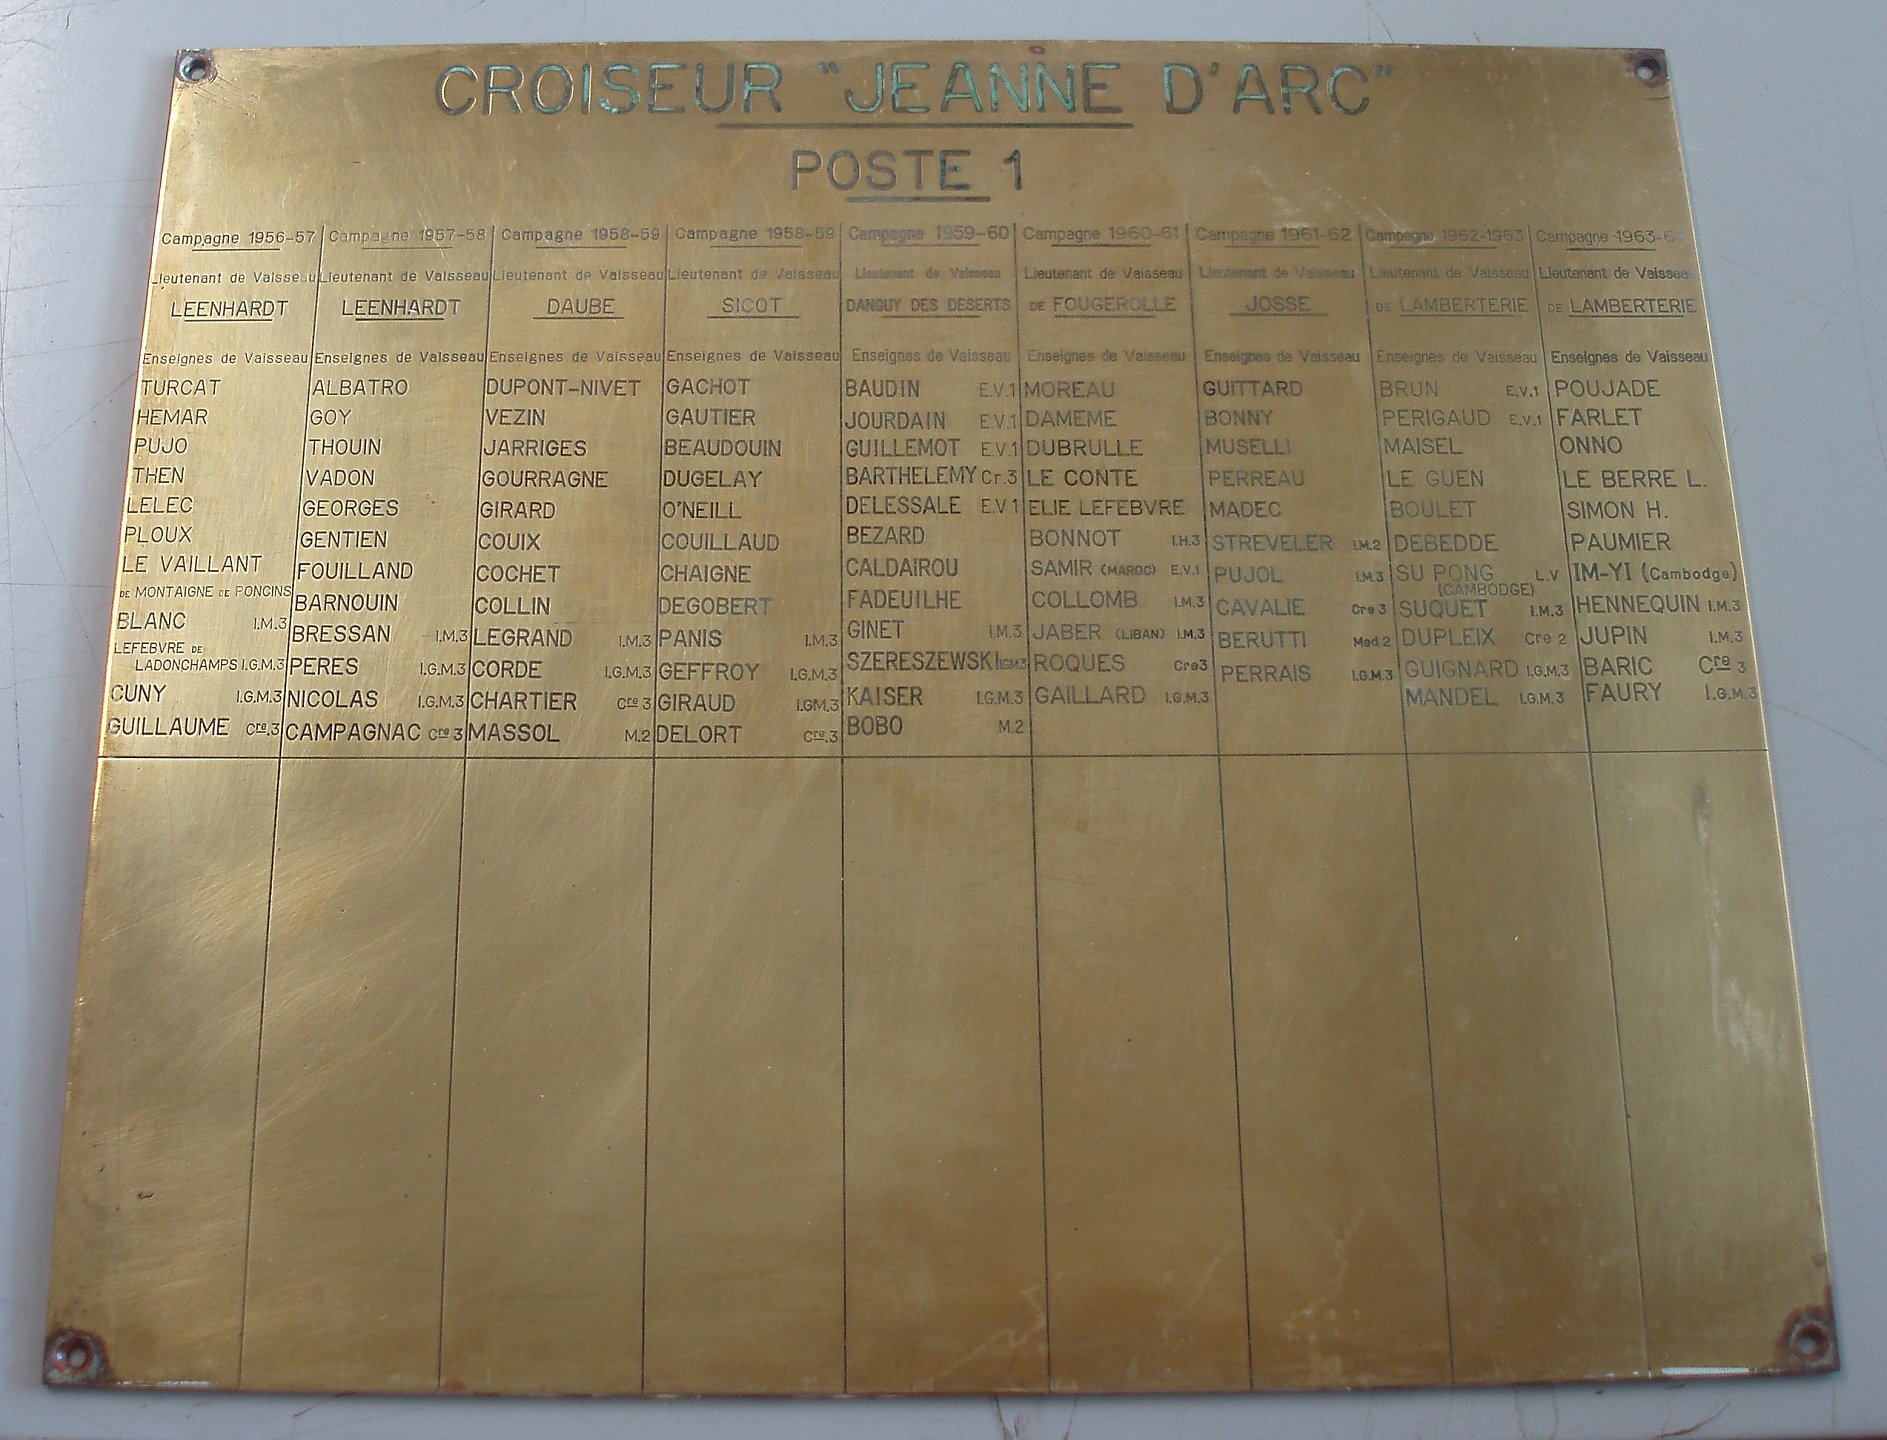 CROISEUR "JEANNE D'ARC"
POSTE 1
Campagne 1956-57
Lieutenant de Vaisseau
LEENHARDT
Enseignes de Vaisseau
TURCAT
HEMAR
PUJO
THEN
LELEC
PLOUX
LE VAILLANT
DE MONTAIGNE DE PONCINS
BLANC I.M.3
LEFEBVRE DE
LADONCHAMPS I.G.M.3
CUNY I.G.M.3
GUILLAUME Cre.3
Campagne 1957-58
Lieutenant de Vaisseau
LEENHARDT
Enseignes de Vaisseau
ALBATRO
GOY
THOUIN
VADON
GEORGES
GENTIEN
FOUILLAND
BARNOUIN
BRESSAN I.M.3
PERES I.G.M.3
NICOLAS I.G.M.3
CAMPAGNAC Cre 3
Campagne 1958-59
Lieutenant de Vaisseau
DAUBE
Enseignes de Vaisseau
DUPONT-NIVET
VEZIN
JARRIGES
GOURRAGNE
GIRARD
COUIX
COCHET
COLLIN
LEGRAND I.M.3
CORDE I.G.M.3
CHARTIER Cre 3
MASSOL M.2
Campagne 1958-59
Lieutenant de Vaisseau
SICOT
Enseignes de Vaisseau
GACHOT
GAUTIER
BEAUDOUIN
DUGELAY
O'NEILL
COUILLAUD
CHAIGNE
DEGOBERT
PANIS I.M.3
GEFFROY I.G.M.3
GIRAUD I.GM.3
DELORT Cre.3
Campagne 1959-60
Lieutenant de Vaisseau
DANGUY DES DESERTS
Enseignes de Vaisseau
BAUDIN E.V.1
JOURDAIN E.V.1
GUILLEMOT E.V.1
BARTHELEMY Cr.3
DELESSALE E.V 1
BEZARD
CALDAIROU
FADEUILHE
GINET I.M.3
SZERESZEWSKI IGM3
KAISER I.G.M.3
BOBO M.2
Campagne 1960-61
Lieutenant de Vaisseau
DE FOUGEROLLE
Enseignes de Vaisseau
MOREAU
DAMEME
DUBRULLE
LE CONTE
ELIE LEFEBVRE
BONNOT I.H.3
SAMIR (MAROC) E.V.1
COLLOMB I.M.3
JABER (LIBAN) I.M.3
ROQUES Cre3
GAILLARD I.G.M.3
Campagne 1961-62
Lieutenant de Vaisseau
JOSSE
Enseignes de Vaisseau
GUITTARD
BONNY
MUSELLI
PERREAU
MADEC
STREVELER I.M.2
PUJOL I.M.3
CAVALIE Cre 3
BERUTTI Med 2
PERRAIS I.G.M.3
Campagne 1962-1963
Lieutenant de Vaisseau
DE LAMBERTERIE
Enseignes de Vaisseau
BRUN E.V.1
PERIGAUD E.V.1
MAISEL
LE GUEN
BOULET
DEBEDDE
SU PONG L.V
(CAMBODGE)
SUQUET I.M.3
DUPLEIX Cre 2
GUIGNARD I.G.M.3
MANDEL I.G.M.3
Campagne 1963-64
Lieutenant de Vaisseau
DE LAMBERTERIE
Enseignes de Vaisseau
POUJADE
FARLET
ONNO
LE BERRE L.
SIMON H.
PAUMIER
IM-YI (Cambodge)
HENNEQUIN I.M.3
JUPIN I.M.3
BARIC Cre 3
FAURY I.G.M.3